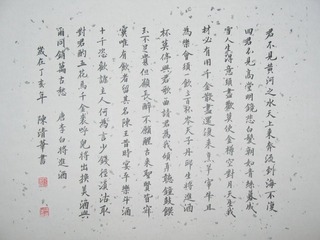 君不見黃河之水天上來奔流到海不復
回君不見高堂明鏡悲白髮朝如青絲暮成
雪人生得意須盡歡莫使金樽空對月天生我
材必有用千金散盡還復來烹羊宰牛且
為樂會須一飲三百杯岑夫子丹邱生將進酒
杯莫停與君歌一曲請君為我傾耳聽鐘鼓饌
玉不足貴但願長醉不願醒古來聖賢皆寂
寞唯有飲者留其名陳王昔時宴平樂斗酒
十千恣歡謔主人何為言少錢徑須沽取
對君酌五花馬千金裘呼兒將出換美酒與
爾同銷萬古愁 唐李白將進酒
歲在丁亥年 陳清華書